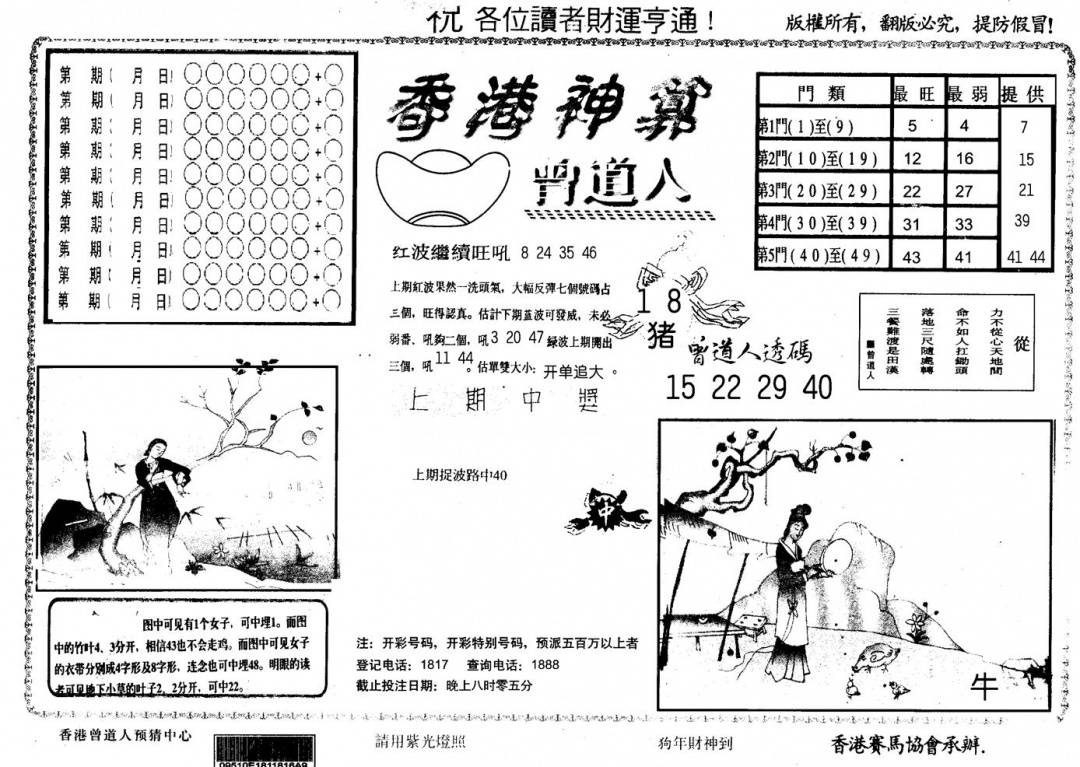 祝 各位讀者財運亨通！
版權所有，翻版必究，提防假冒!
第 期( 月 日)
第 期( 月 日)
第 期( 月 日)
第 期( 月 日)
第 期( 月 日)
第 期( 月 日)
第 期( 月 日)
第 期( 月 日)
第 期( 月 日)
第 期( 月 日)
香港神算
曾道人
門 類 最 旺 最 弱 提 供
第1門(1)至(9) 5 4 7
第2門(10)至(19) 12 16 15
第3門(20)至(29) 22 27 21
第4門(30)至(39) 31 33 39
第5門(40)至(49) 43 41 41 44
红波繼續旺吼 8 24 35 46
上期紅波果然一洗頭氣，大幅反彈七個號碼占
三個，旺得認真。估計下期蓝波可發威，未必
弱番、吼夠二個，吼3 20 47緑波上期開出
三個，吼11 44。估單雙大小：开单追大。
上 期 中 獎
上期捉波路中40
18
猪
曾道人透碼
15 22 29 40
從
力不從心天地間
命不如人扛鋤頭
落地三尺隨處轉
三餐難渡是田漢
曾道人
中
图中可见有1个女子，可中埋1。而图
中的竹叶4、3分开，相信43也不会走鸡。而图中可见女子
的衣带分别成4字形及8字形，连念也可中埋48。明眼的读
者可见地下小草的叶子2、2分开，可中22。
注：开彩号码，开彩特别号码，预派五百万以上者
登记电话：1817 查询电话：1888
截止投注日期：晚上八时零五分
牛
香港曾道人预猜中心
09510E1811816A9
請用紫光燈照
狗年財神到
香港賽馬協會承辦.